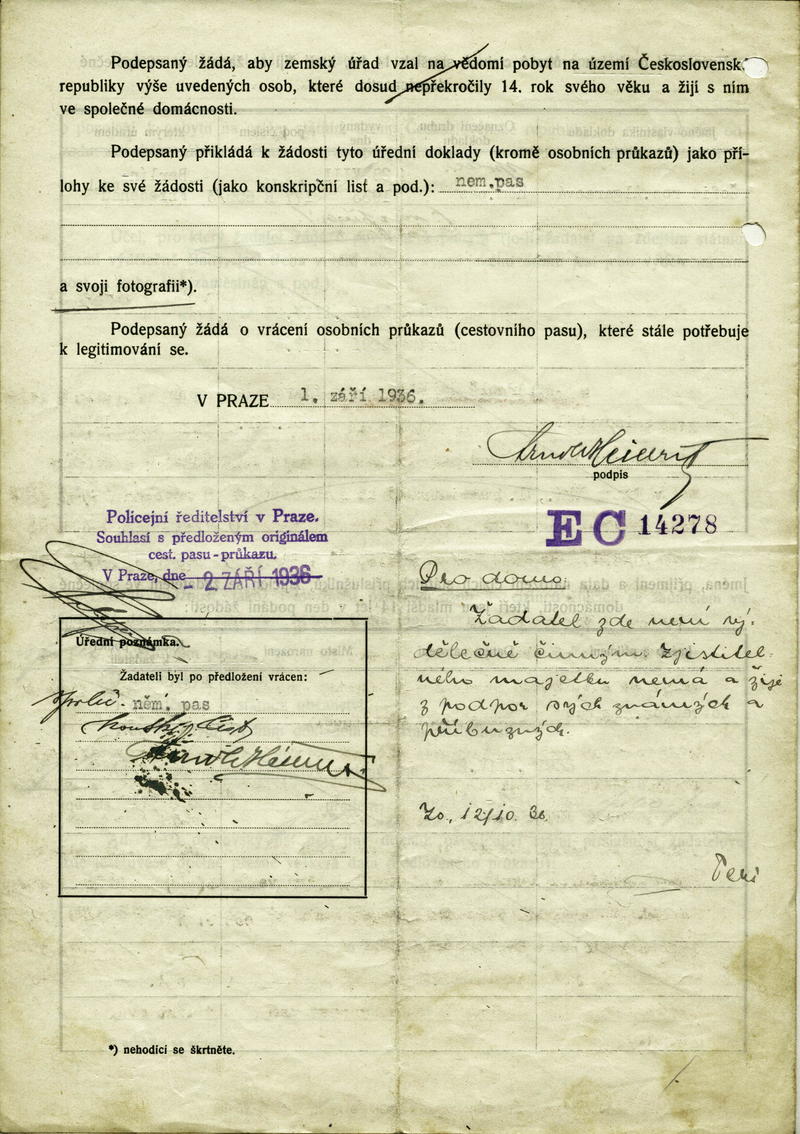 Podepsaný žádá, aby zemský úřad vzal na vědomí pobyt na území Československ
republiky výše uvedených osob, které dosud nepřekročily 14. rok svého věku a žijí s ním
ve společné domácnosti.
Podepsaný přikládá k žádosti tyto úřední doklady (kromě osobních průkazů) jako pří-
lohy ke své žádosti (jako konskripční list a pod.): nem.pas
a svoji fotografii*).
Podepsaný žádá o vrácení osobních průkazů (cestovního pasu), které stále potřebuje
k legitimování se.
V PRAZE 1. září 1936.
podpis
Policejní ředitelství v Praze.
Souhlasí s předloženým originálem
cest. pasu-průkazu.
V Praze, dne - 2 ZÁŘÍ 1936
EC 14278
Pro domo:
Žadatel zde není vý-
dělečně činným. Zjistitel-
ného majetku nemá a žije
z podpor svých známých a
příbuzných.
12/10. 36.
Úřední poznámka.
Žadateli byl po předložení vrácen:
něm. pas
*) nehodící se škrtněte.